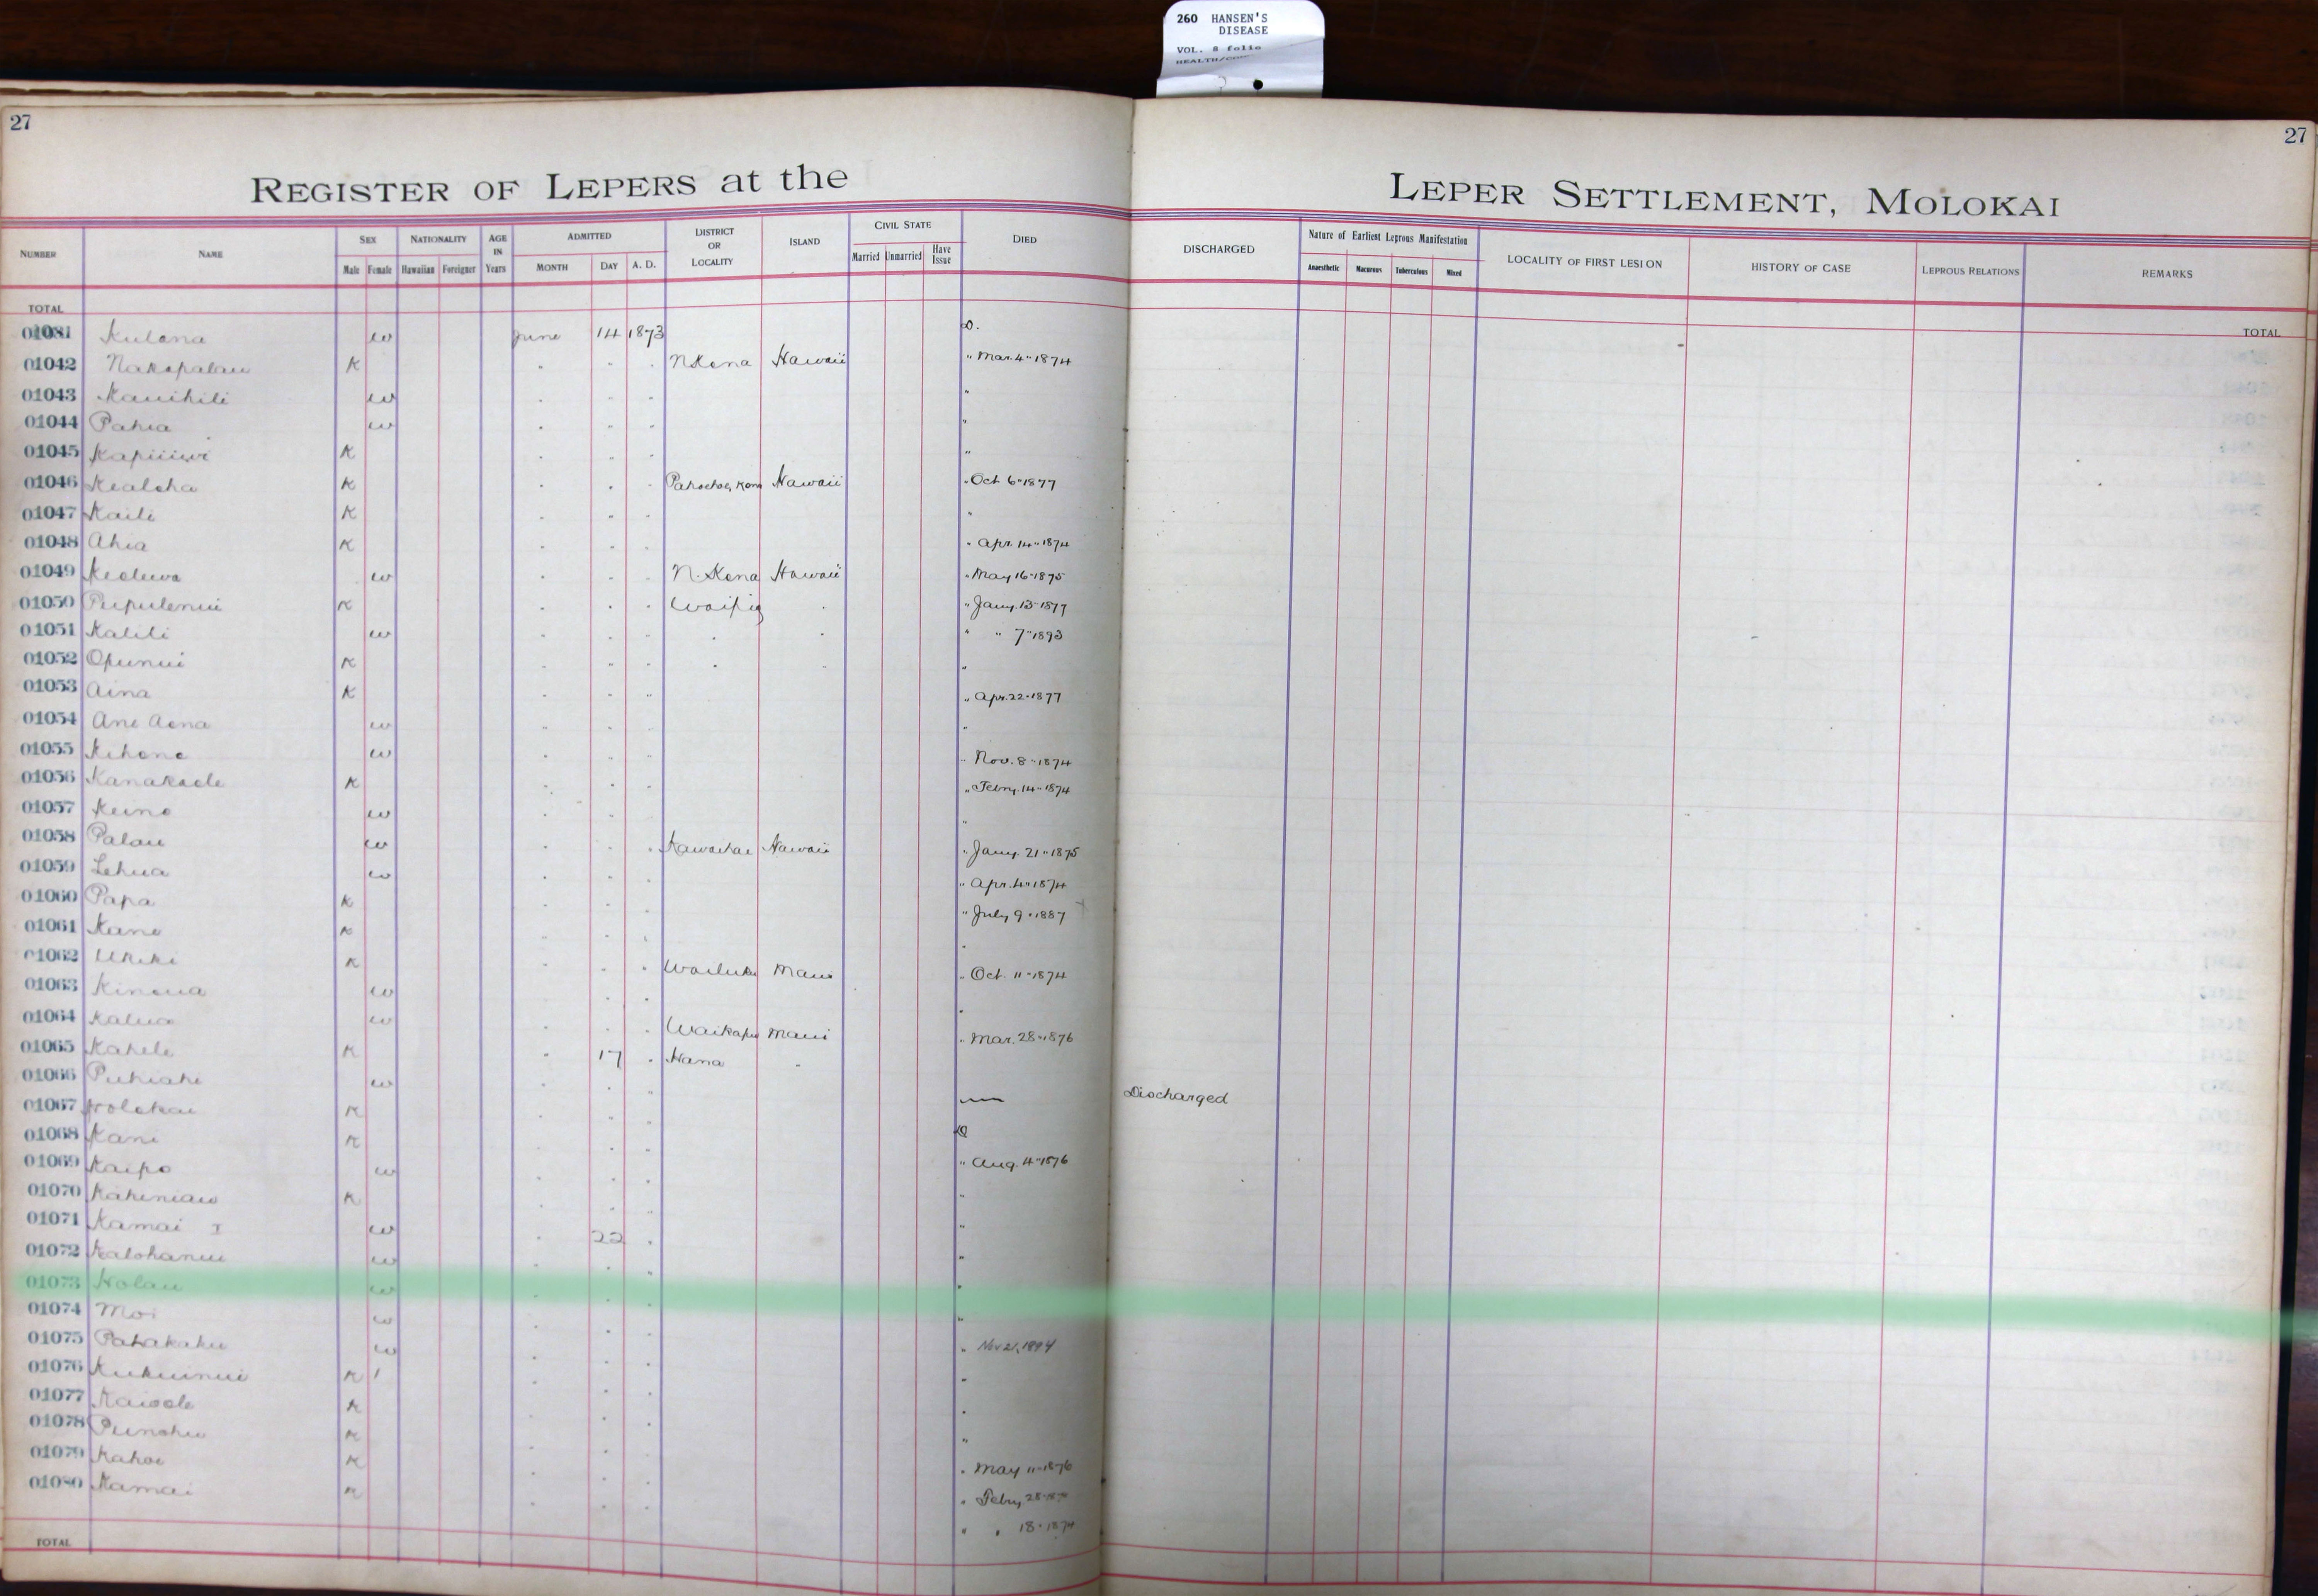 260 HANSEN'S
DISEASE
VOL. 8 folio
27
27
REGISTER OF LEPERS at the LEPER SETTLEMENT, MOLOKAI
NUMBER NAME SEX Male Female NATIONALITY Hawaiian Foreigner AGE IN Years ADMITTED MONTH DAY A. D. DISTRICT OR LOCALITY ISLAND CIVIL STATE Married Unmarried Have Issue DIED DISCHARGED Nature of Earliest Leprous Manifestation Anaesthetic Macurous Tuberculous Mixed LOCALITY OF FIRST LESION HISTORY OF CASE LEPROUS RELATIONS REMARKS
TOTAL TOTAL
Kulana w June 14 1873 D.
01042 Nakopalau K " " " N Kona Hawaii " Mar. 4" 1874
01043 Kauihili w " " " "
01044 Pahia w " " " "
01045 K " " " "
01046 Kealoha K " " " Kona Hawaii " Oct 6" 1877
01047 Kaili K " " " "
01048 Ahia K " " " " Apr. 14" 1874
01049 w " " " N. Kona Hawaii " May 16" 1875
01050 Pupulenui K " " " Waipio " " Jany. 13" 1877
01051 Kalili w " " " " " " " 7" 1893
01052 Opunui K " " " " " "
01053 Aina K " " " " Apr. 22" 1877
01054 Ane Aona w " " " "
01055 Kihene w " " " " Nov. 8" 1874
01056 Kanakaole K " " " " Febry. 14" 1874
01057 Keino w " " " "
01058 Palau w " " " Kawaihae Hawaii " Jany. 21" 1875
01059 Lehua w " " " " Apr. 4" 1874
01060 Papa K " " " " July 9" 1887
01061 Kane K " " " "
01062 Ukeke K " " " Wailuku Maui " Oct. 11" 1874
01063 Kinoua w " " " "
01064 Kalua w " " " Waikapu Maui " Mar. 28" 1876
01065 Kahele K " 17 " Hana "
01066 Puhiahi w " " " — Discharged
01067 Holokai K " " " D
01068 Kani K " " " " Aug. 4" 1876
01069 Kaipo w " " " "
01070 Kaheniau K " " " "
01071 Kamai I w " 22 " "
01072 Kalohanui w " " " "
01073 Holau w " " " "
01074 Moi w " " " Nov 21, 1894
01075 w " " " "
01076 Kukuinui K " " " "
01077 Kaiole K " " " "
01078 Punohu K " " " " May 11" 1876
01079 Kahoe K " " " " Febry 28"
01080 Kamai K " " " " " 18" 1874
TOTAL